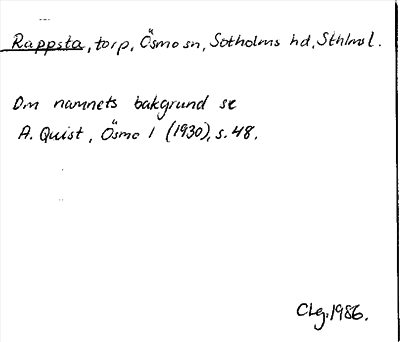 Rappsta, torp, Ösmo sn, Sotholms hd, Sthlms l.
Om namnets bakgrund se
A. Quist, Ösmo 1 (1930), s. 48.
CLg. 1986.